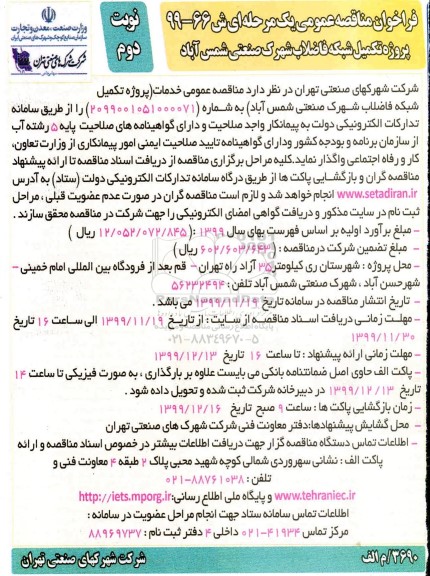 وزارت صنعت، معدن و تجارت
نوبت
دوم
فراخوان مناقصه عمومی یک مرحله ای ش ۶۶-۹۹
پروژه تکمیل شبکه فاضلاب شهرک صنعتی شمس آباد
شرکت شهرکهای صنعتی تهران در نظر دارد مناقصه عمومی خدمات(پروژه تکمیل
شبکه فاضلاب شهرک صنعتی شمس آباد) به شماره (۲۰۹۹۰۰۱۰۵۱۰۰۰۰۷۱) را از طریق سامانه
تدارکات الکترونیکی دولت به پیمانکار واجد صلاحیت و دارای گواهینامه های صلاحیت پایه ۵ رشته آب
از سازمان برنامه و بودجه کشور ودارای گواهینامه تایید صلاحیت ایمنی امور پیمانکاری از وزارت تعاون،
کار و رفاه اجتماعی واگذار نماید.کلیه مراحل برگزاری مناقصه از دریافت اسناد مناقصه تا ارائه پیشنهاد
مناقصه گران و بازگشایی پاکت ها از طریق درگاه سامانه تدارکات الکترونیکی دولت (ستاد) به آدرس
www.setadiran.ir انجام خواهد شد و لازم است مناقصه گران در صورت عدم عضویت قبلی ، مراحل
ثبت نام در سایت مذکور و دریافت گواهی امضای الکترونیکی را جهت شرکت در مناقصه محقق سازند .
- مبلغ برآورد اولیه بر اساس فهرست بهای سال ۱۳۹۹ :(۱۲/۰۵۲/۰۷۲/۸۴۵ ریال )
- مبلغ تضمین شرکت درمناقصه : (۶۰۲/۶۰۳/۶۴۳ ریال )
- محل پروژه : شهرستان ری کیلومتر۳۵ آزاد راه تهران – قم بعد از فرودگاه بین المللی امام خمینی –
شهرحسن آباد ، شهرک صنعتی شمس آباد تلفن: ۵۶۲۳۲۴۹۴
- تاریخ انتشار مناقصه در سامانه تاریخ ۱۳۹۹/۱۱/۱۹ می باشد .
- مهلت زمانی دریافت اسناد مناقصه از سایت : از تاریخ ۱۳۹۹/۱۱/۱۹ الی ساعت ۱۶ تاریخ
۱۳۹۹/۱۱/۳۰
- مهلت زمانی ارائه پیشنهاد : تا ساعت ۱۶ تاریخ ۱۳۹۹/۱۲/۱۳
- پاکت الف حاوی اصل ضمانتنامه بانکی می بایست علاوه بر بارگذاری ، به صورت فیزیکی تا ساعت ۱۴
تاریخ ۱۳۹۹/۱۲/۱۳ در دبیرخانه شرکت ثبت شده و تحویل داده شود .
- زمان بازگشایی پاکت ها : ساعت ۹ صبح تاریخ ۱۳۹۹/۱۲/۱۶
- محل گشایش پیشنهادها:دفتر معاونت فنی شرکت شهرک های صنعتی تهران
- اطلاعات تماس دستگاه مناقصه گزار جهت دریافت اطلاعات بیشتر در خصوص اسناد مناقصه و ارائه
پاکت الف : نشانی سهروردی شمالی کوچه شهید محبی پلاک ۲ طبقه ۴ معاونت فنی و
تلفن : ۸۸۷۶۱۰۳۸-۰۲۱
www.tehraniec.ir و پایگاه ملی اطلاع رسانی:http://iets.mporg.ir
اطلاعات تماس سامانه ستاد جهت انجام مراحل عضویت در سامانه :
مرکز تماس ۴۱۹۳۴-۰۲۱ داخلی ۴ دفتر ثبت نام : ۸۸۹۶۹۷۳۷
۳۶۹۰/م الف
شرکت شهرکهای صنعتی تهران